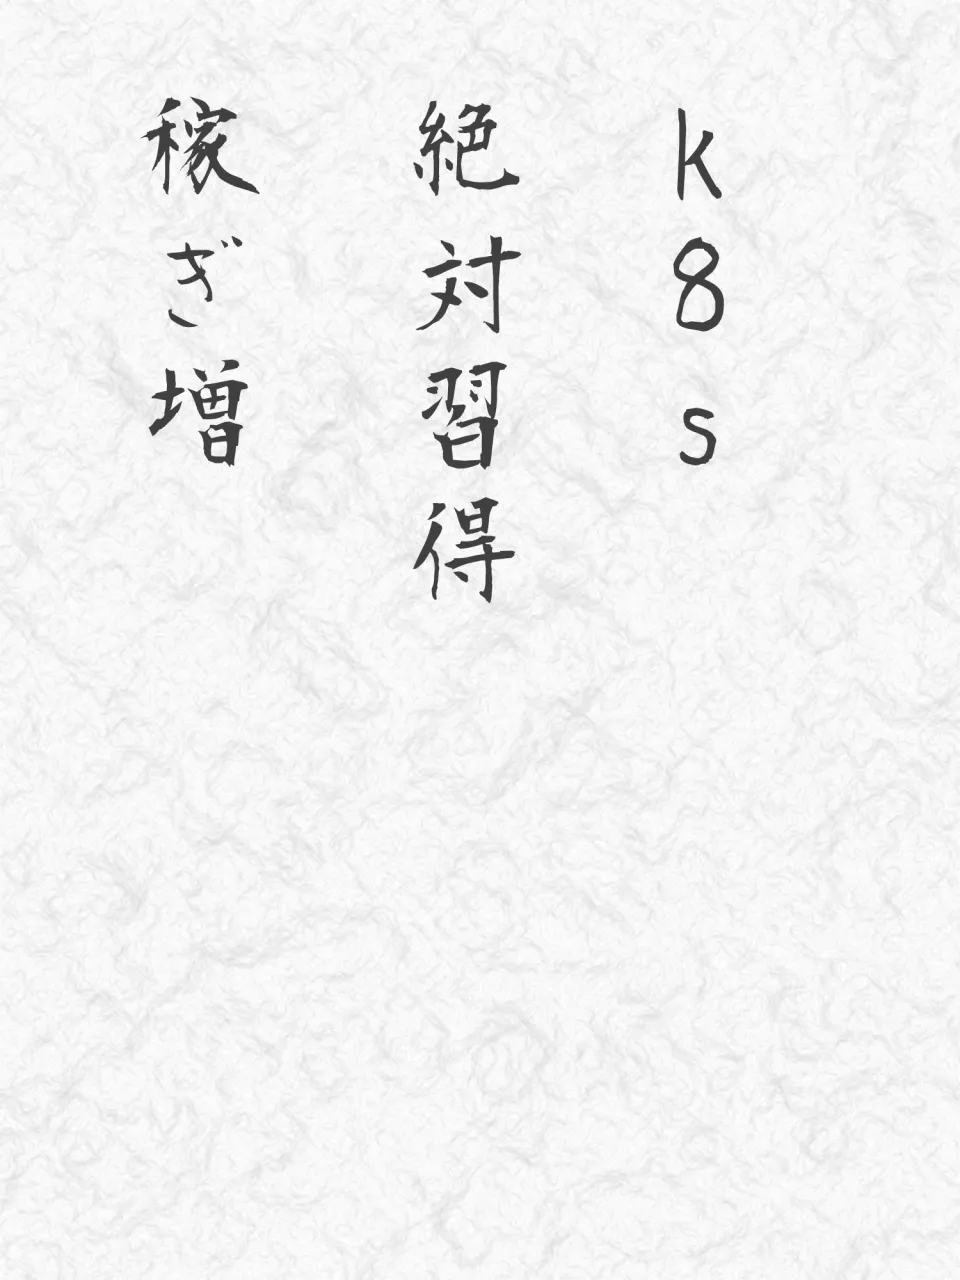 k8s
絶対習得
稼ぎ増